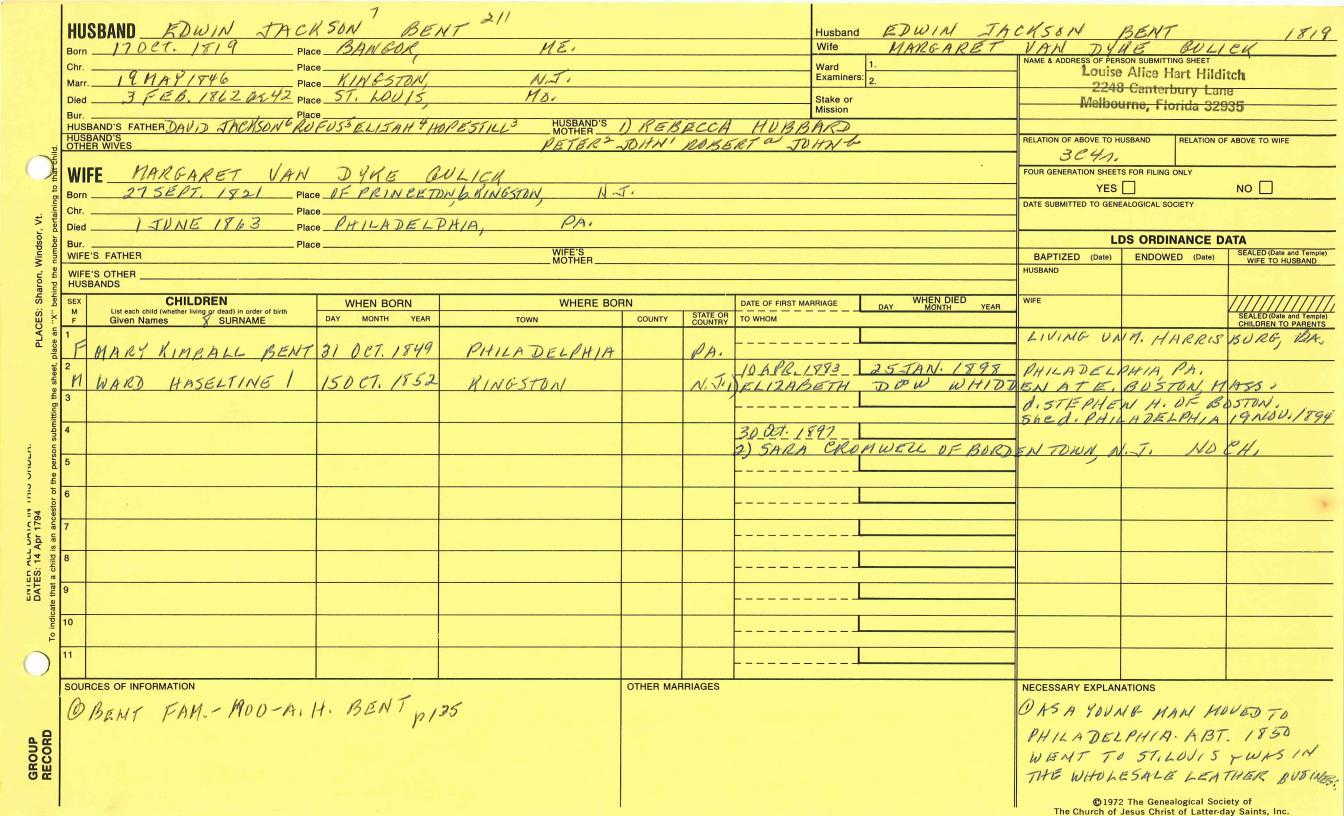 HUSBAND EDWIN JACKSON 7 BENT 211
Born 17 OCT. 1819 Place BANGOR, ME.
Chr. Place
Marr. 19 MAY 1846 Place KINGSTON, N.J.
Died 3 FEB. 1862 ae 42 Place ST. LOUIS, MO.
Bur. Place
HUSBAND'S FATHER DAVID JACKSON 6 RUFUS 5 ELIJAH 4 HOPESTILL 3 HUSBAND'S MOTHER 1) REBECCA HUBBARD
HUSBAND'S OTHER WIVES PETER 2 JOHN 1 ROBERT a JOHN b
Husband EDWIN JACKSON BENT 1819
Wife MARGARET VAN DYKE GULICK
Ward Examiners: 1.
2.
Stake or Mission
NAME & ADDRESS OF PERSON SUBMITTING SHEET
Louise Alice Hart Hilditch
2248 Canterbury Lane
Melbourne, Florida 32935
RELATION OF ABOVE TO HUSBAND RELATION OF ABOVE TO WIFE
3C4r.
FOUR GENERATION SHEETS FOR FILING ONLY
YES NO
DATE SUBMITTED TO GENEALOGICAL SOCIETY
WIFE MARGARET VAN DYKE GULICK
Born 27 SEPT. 1821 Place OF PRINCETON, b. KINGSTON, N.J.
Chr. Place
Died 1 JUNE 1863 Place PHILADELPHIA, PA.
Bur. Place
WIFE'S FATHER WIFE'S MOTHER
WIFE'S OTHER HUSBANDS
LDS ORDINANCE DATA
BAPTIZED (Date) ENDOWED (Date) SEALED (Date and Temple) WIFE TO HUSBAND
HUSBAND
WIFE
SEALED (Date and Temple) CHILDREN TO PARENTS
SEX M F
CHILDREN
List each child (whether living or dead) in order of birth
Given Names SURNAME
WHEN BORN
DAY MONTH YEAR
WHERE BORN
TOWN COUNTY STATE OR COUNTRY
DATE OF FIRST MARRIAGE
TO WHOM
WHEN DIED
DAY MONTH YEAR
1 F MARY KIMBALL BENT 31 OCT. 1849 PHILADELPHIA PA. LIVING UNM. HARRISBURG, PA.
2 M WARD HASELTINE 15 OCT. 1852 KINGSTON N.J. 10 APR. 1883 25 JAN. 1898 PHILADELPHIA, PA.
1) ELIZABETH DOW WHIDDEN AT E. BOSTON, MASS.
3 d. STEPHEN H. OF BOSTON.
She d. PHILADELPHIA 19 NOV. 1894
4 30 OCT. 1897
2) SARA CROMWELL OF BORDENTOWN, N.J. NO CH.
5
6
7
8
9
10
11
SOURCES OF INFORMATION
① BENT FAM.-1900-A.H. BENT p135
OTHER MARRIAGES
NECESSARY EXPLANATIONS
① AS A YOUNG MAN MOVED TO
PHILADELPHIA. ABT. 1850
WENT TO ST. LOUIS & WAS IN
THE WHOLESALE LEATHER BUSINESS.
©1972 The Genealogical Society of
The Church of Jesus Christ of Latter-day Saints, Inc.
GROUP RECORD
ENTER ALL DATA IN THIS ORDER:
DATES: 14 Apr 1794
PLACES: Sharon, Windsor, Vt.
To indicate that a child is an ancestor of the person submitting the sheet, place an "X" behind the number pertaining to that child.